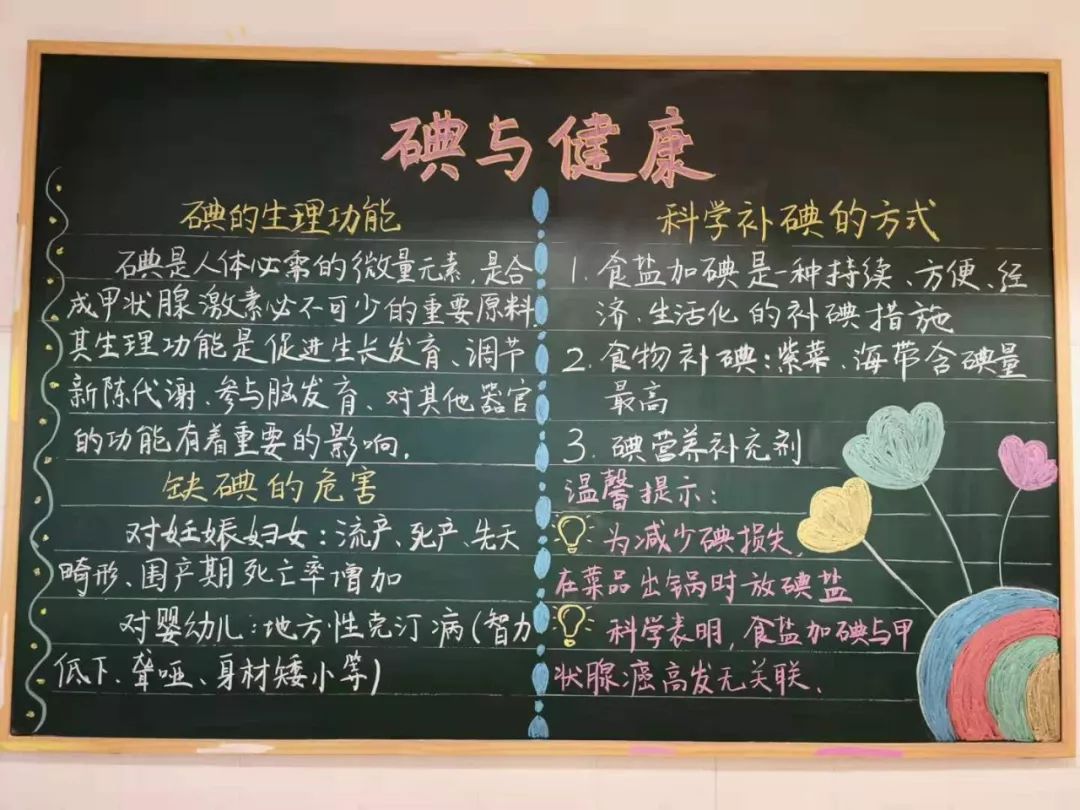 碘与健康
碘的生理功能
碘是人体必需的微量元素,是合
成甲状腺激素必不可少的重要原料.
其生理功能是促进生长发育、调节
新陈代谢、参与脑发育、对其他器官
的功能有着重要的影响.
缺碘的危害
对妊娠妇女:流产、死产、先天
畸形、围产期死亡率增加
对婴幼儿:地方性克汀病(智力
低下、聋哑、身材矮小等)
科学补碘的方式
1.食盐加碘是一种持续、方便、经
济、生活化的补碘措施
2.食物补碘:紫菜、海带含碘量
最高
3.碘营养补充剂
温馨提示:
为减少碘损失,
在菜品出锅时放碘盐
科学表明,食盐加碘与甲
状腺癌高发无关联.